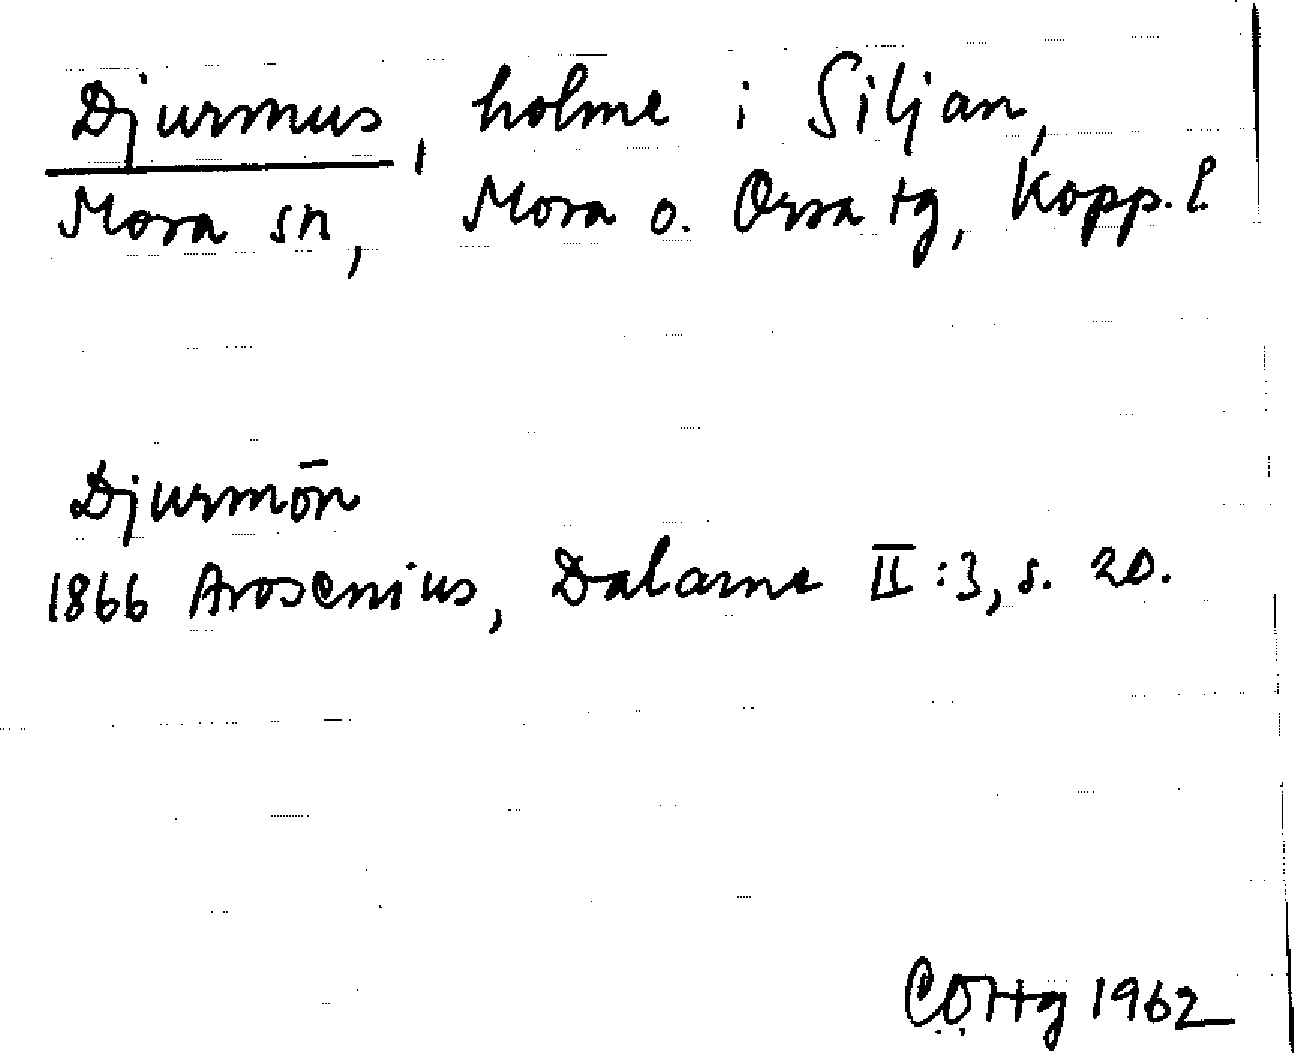 Djurmus, holme i Siljan,
Mora sn, Mora o. Orsa tg, Kopp. l.
Djurmōn
1866 Arosenius, Dalarne II:3, s. 20.
1962